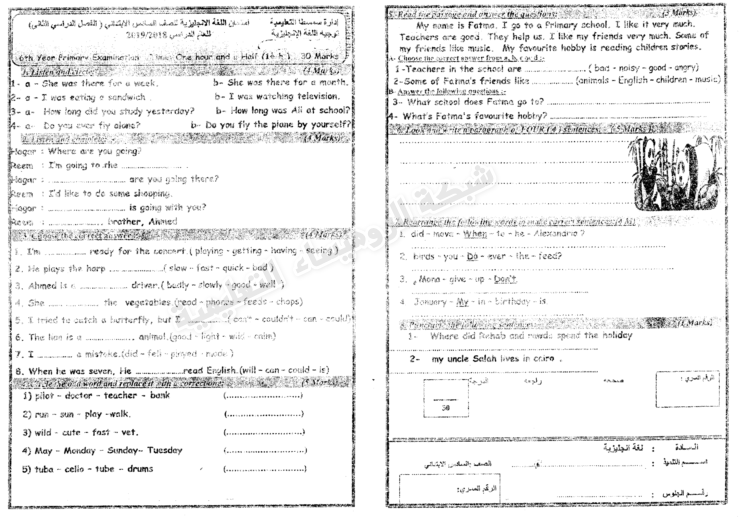 إدارة سمسطا التعليمية
توجيه اللغة الإنجليزية
امتحان اللغة الانجليزية للصف السادس الابتدائي ( الفصل الدراسي الثاني)
للعام الدراسي 2019/2018
6th Year Primary Examination One hour and a Half 30 Marks
1- a - She was there for a week. b- She was there for a month.
2- a - I was eating a sandwich b - I was watching television.
3- a- How long did you study yesterday? b- How long was Ali at school?
4- a- Do you ever fly alone? b- Do you fly the plane by yourself?
2. Listen and complete (4 Marks)
Hagar : Where are you going?
Reem : I'm going to the ...............
Hagar : ............... are you going there?
Reem : I'd like to do some shopping.
Hagar : ............... is going with you?
Reem : ............... brother, Ahmed
3. Choose the correct answer (4 Marks)
1. I'm ............ ready for the concert.( playing - getting - having - seeing )
2. He plays the harp ............(slow - fast - quick - bad )
3. Ahmed is a ............ driver.( badly - slowly - good - well )
4. She ............ the vegetables (read - phones - feeds - chops)
5. I tried to catch a butterfly, but I ............( can't - couldn't - can - could)
6. The lion is a ............ animal.(good - light - wild - calm)
7. I ............ a mistake.(did - fell - played - made )
8. When he was seven, He ............read English.(will - can - could - is)
1) pilot - doctor - teacher - bank (.....................)
2) run - sun - play -walk. (.....................)
3) wild - cute - fast - vet. (.....................)
4) May - Monday - Sunday- Tuesday (.....................)
5) tuba - cello - tube - drums (.....................)
5. Read the passage and answer the questions: (3 Marks)
My name is Fatma. I go to a Primary school. I like it very much.
Teachers are good. They help us. I like my friends very much. Some of
my friends like music. My favourite hobby is reading children stories.
A- Choose the correct answer from a, b, c or d :-
1 -Teachers in the school are ............ ( bad - noisy - good - angry)
2-Some of Fatma's friends like ........... (animals - English - children - music)
B- Answer the following questions :-
3- What school does Fatma go to? ............
4- What's Fatma's favourite hobby? ............
6. Look and write a paragraph of FOUR (4) sentences:
7. Rearrange the following words to make correct sentences:
1. did - move - When - to - he - Alexandria ?
2. birds - you - Do - ever - the - feed?
3. , Mona - give - up - Don't.
4. January - My - in - birthday - is
8. Punctuate the following sentences
1- Where did Rehab and nawal spend the holiday
2- my uncle Salah lives in cairo .
الرقم السري :
30
المــادة : لغة انجليزية
اســـم التلميذ : الصف السادس الابتدائي
رقــم الجلوس :
الرقم السري:
شبكة الروميساء التعليمية